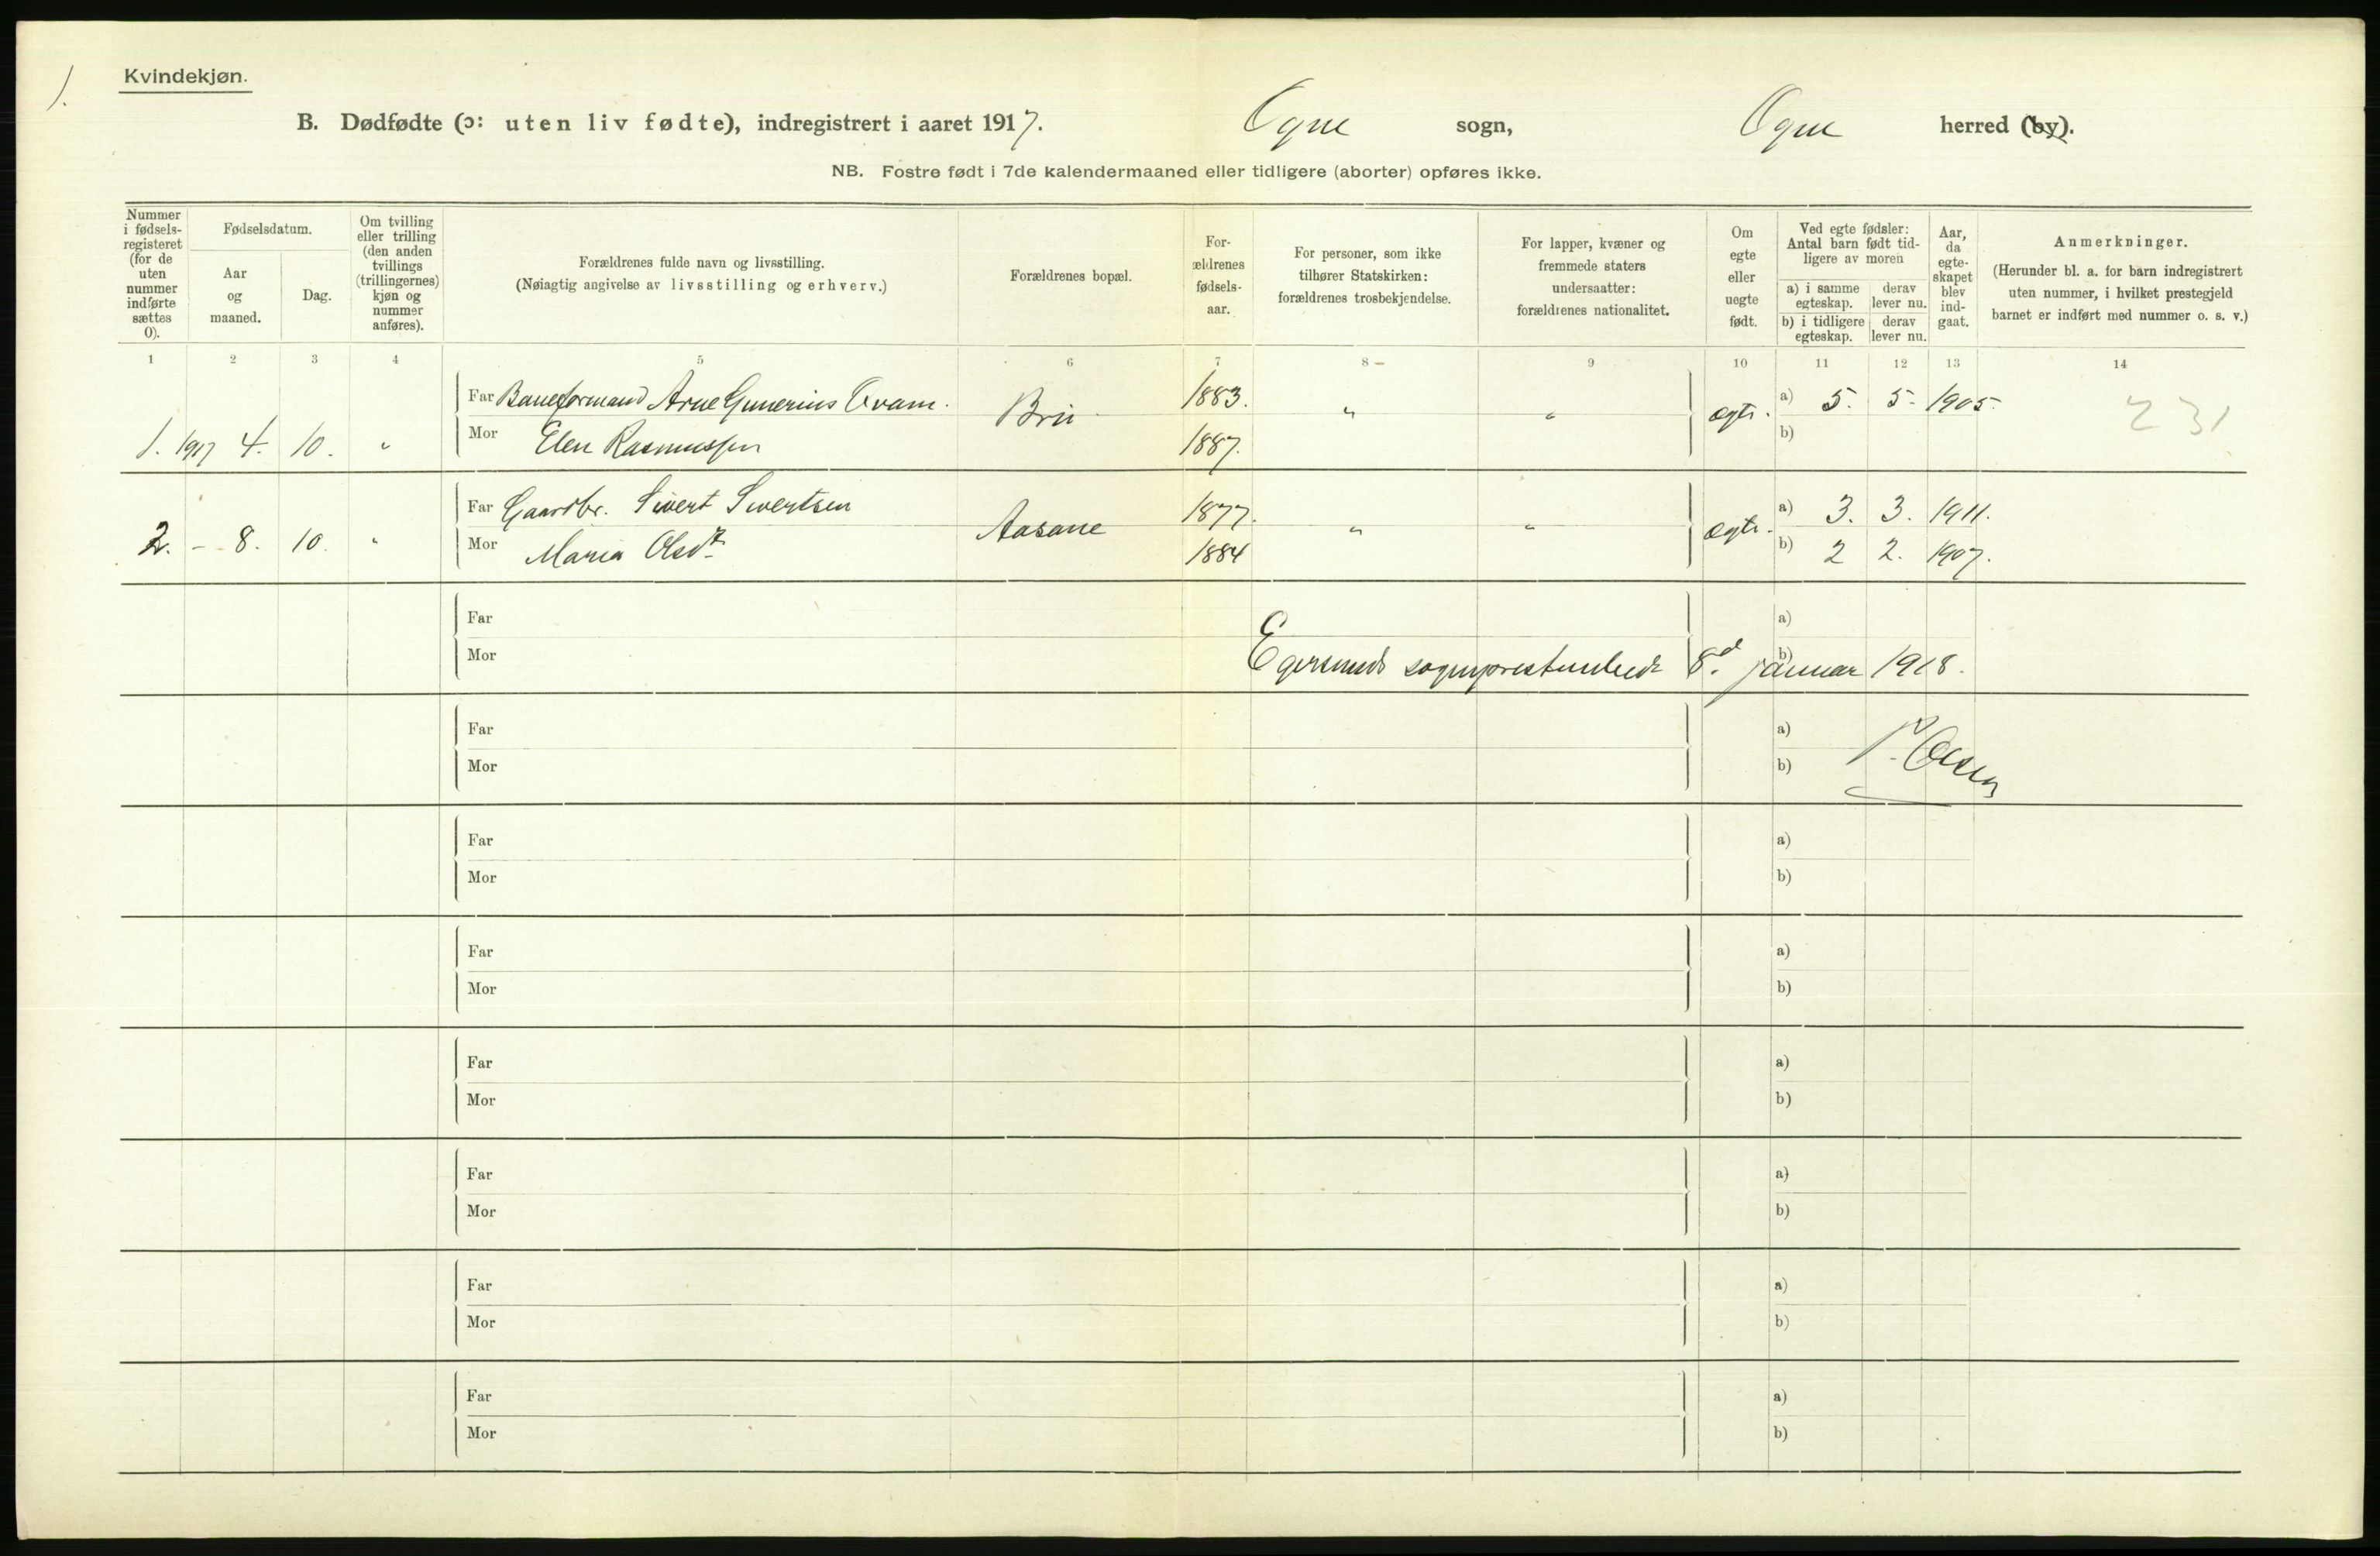 1.
Kvindekjøn.
B. Dødfødte (ɔ: uten liv fødte), indregistrert i aaret 1917. Ogne sogn, Ogne herred (by).
NB. Fostre født i 7de kalendermaaned eller tidligere (aborter) opføres ikke.
Nummer i fødsels-registeret (for de uten nummer indførte sættes 0).
Fødselsdatum.
Aar og maaned.
Dag.
Om tvilling eller trilling (den anden tvillings (trillingernes) kjøn og nummer anføres).
Forældrenes fulde navn og livsstilling.
(Nøiagtig angivelse av livsstilling og erhverv.)
Forældrenes bopæl.
For-ældrenes fødsels-aar.
For personer, som ikke tilhører Statskirken: forældrenes trosbekjendelse.
For lapper, kvæner og fremmede staters undersaatter: forældrenes nationalitet.
Om egte eller uegte født.
Ved egte fødsler: Antal barn født tid-ligere av moren
a) i samme egteskap. derav lever nu.
b) i tidligere egteskap. derav lever nu.
Aar, da egte-skapet blev ind-gaat.
Anmerkninger.
(Herunder bl. a. for barn indregistrert uten nummer, i hvilket prestegjeld barnet er indført med nummer o. s. v.)
1 2 3 4 5 6 7 8 9 10 11 12 13 14
Far Baneformand Arne Gunerius Kvam. Brü 1883. " " egte. a) 5. 5. 1905. 231
1. 1917 4. 10. " Mor Elen Rasmussen 1887. b)
Far Gaardbr. Sivert Sivertsen Aasane 1877. " " egte. a) 3. 3. 1911.
2. – 8. 10. " Mor Maria Olsdt. 1884 b) 2 2. 1907.
Far a)
Mor Egersunds sogneprestembede 8d. januar 1918. b)
Far a) P. Olsen
Mor b)
Far a)
Mor b)
Far a)
Mor b)
Far a)
Mor b)
Far a)
Mor b)
Far a)
Mor b)
Far a)
Mor b)